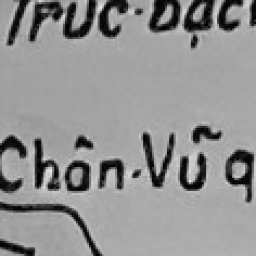 Trúc-Bạc
Chân-Vũ q